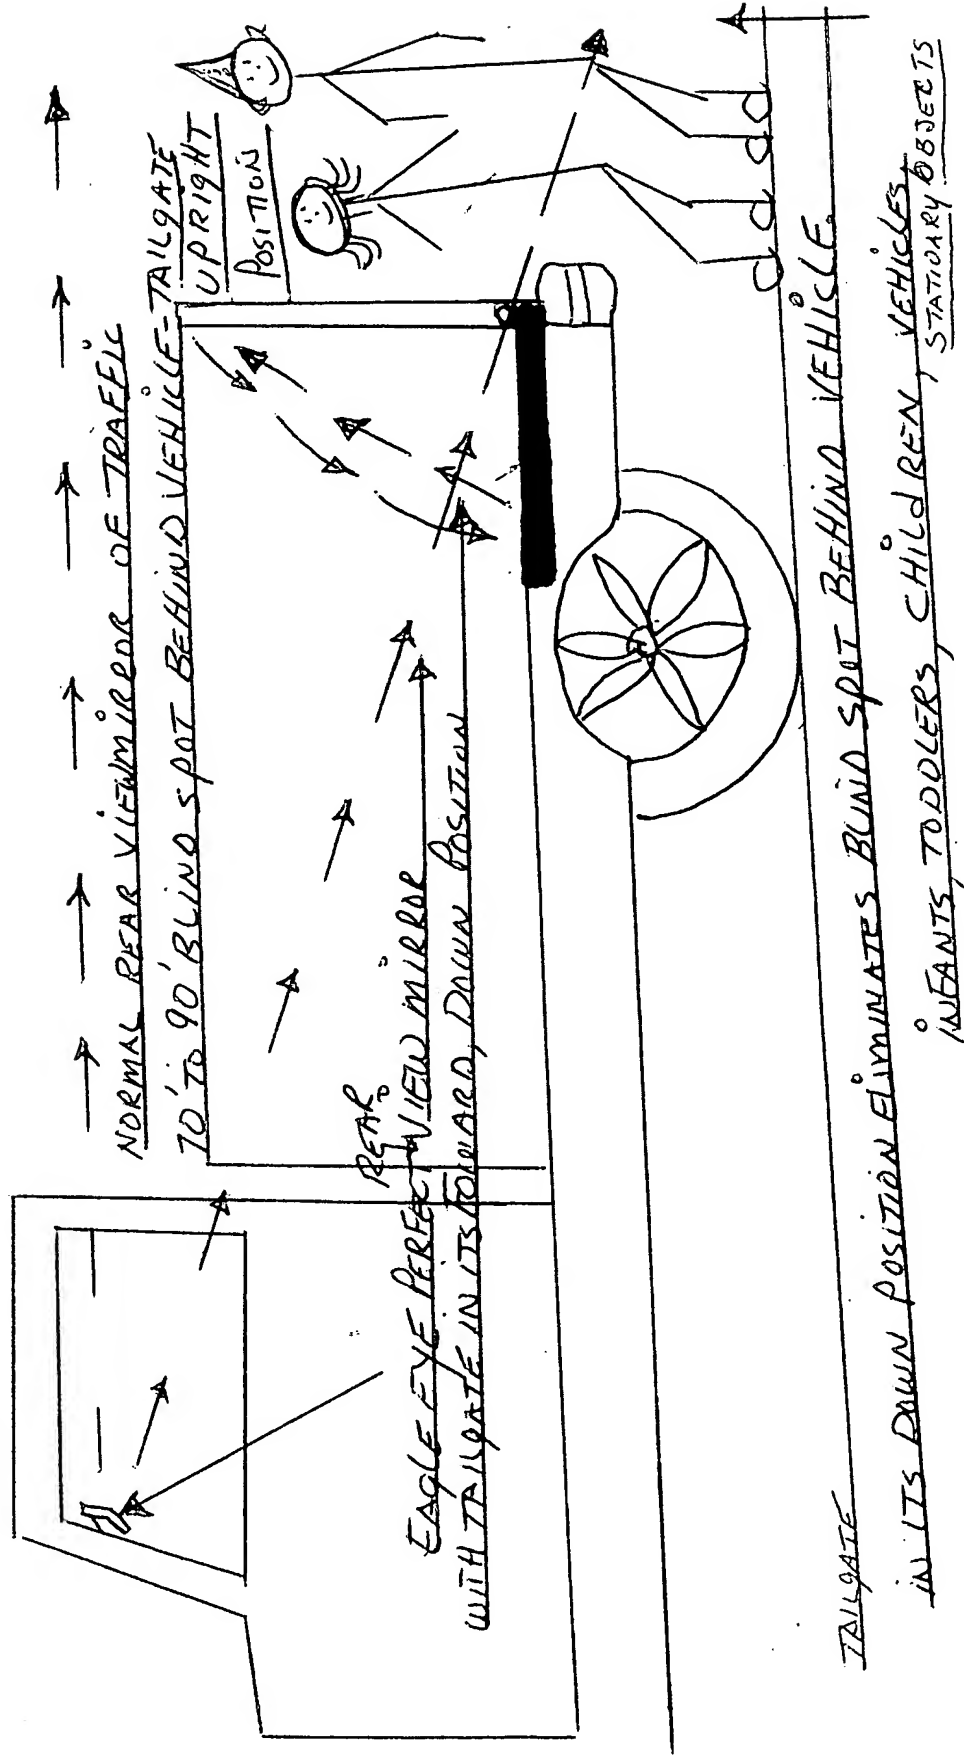 NORMAL REAR VIEW MIRROR OF TRAFFIC
10' TO 90' BLIND SPOT BEHIND VEHICLE-TAILGATE
UPRIGHT
POSITION
REAR
EAGLE EYE PERFECT VIEW MIRROR
WITH TAILGATE IN ITS FORWARD, DOWN POSITION
TAILGATE
IN ITS DOWN POSITION ELIMINATES BLIND SPOT BEHIND VEHICLE
INFANTS, TODDLERS, CHILDREN, VEHICLES,
STATIONARY OBJECTS